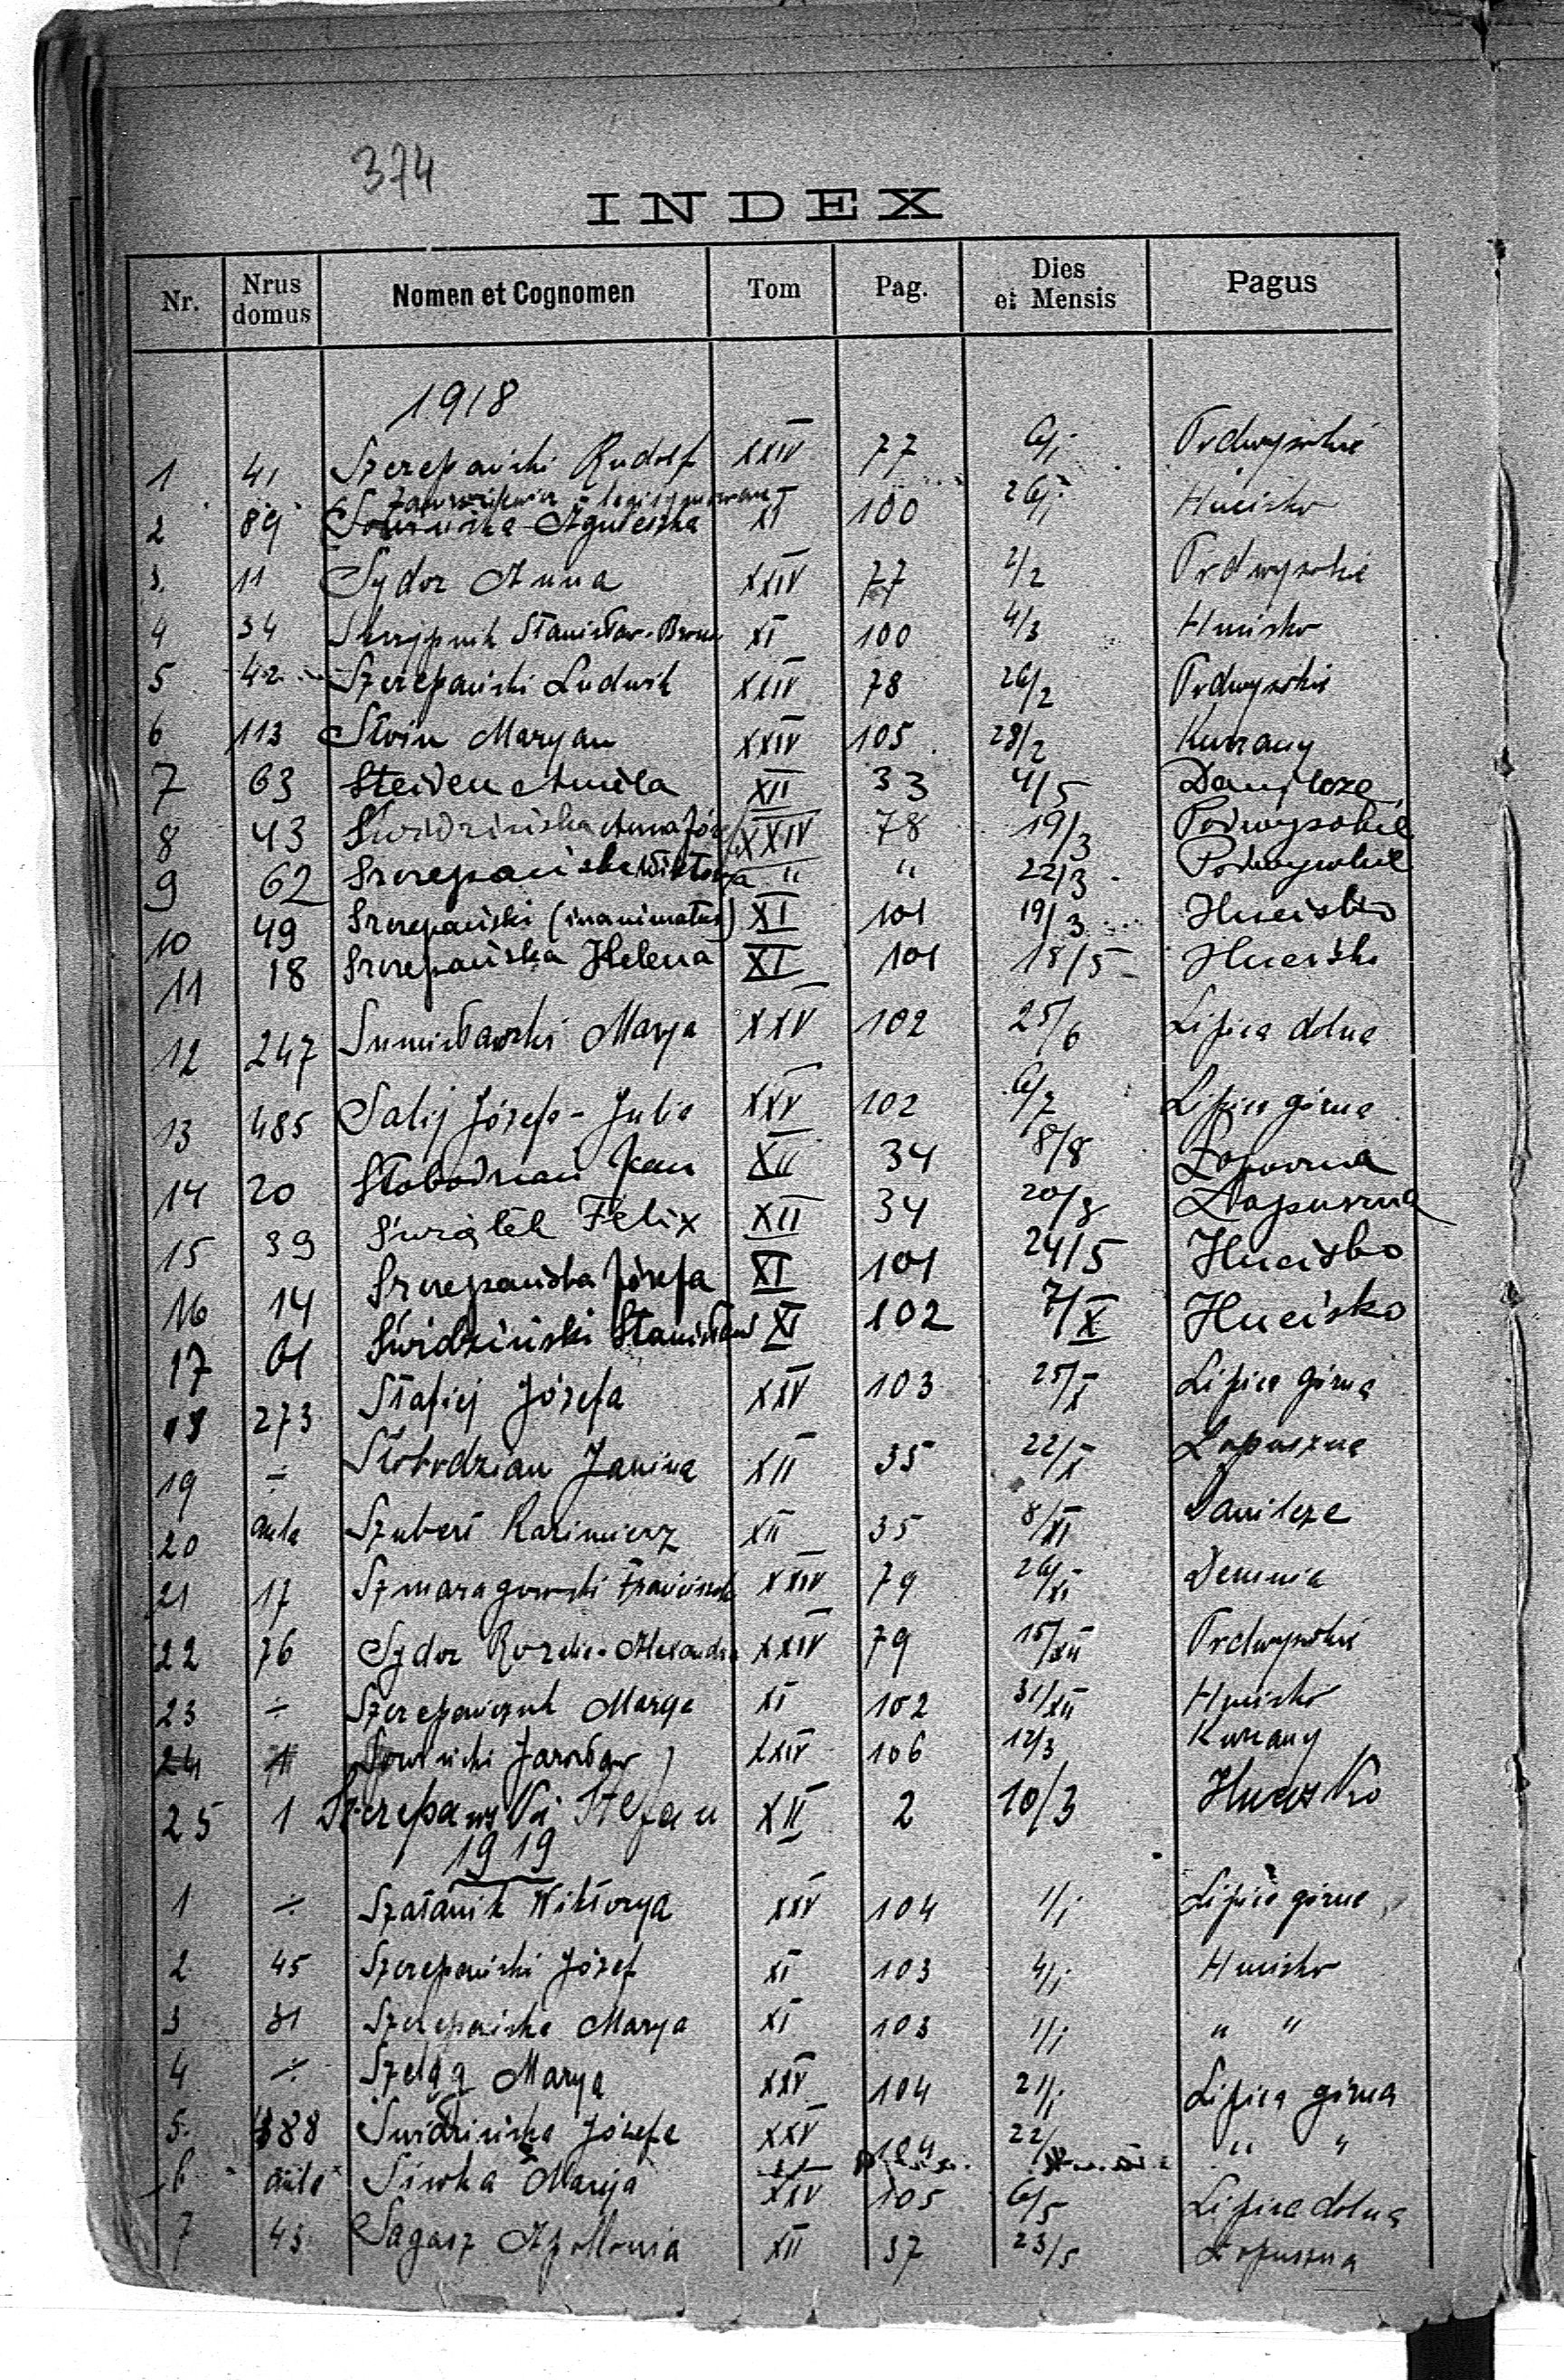 374
INDEX
Nr. Nrus domus Nomen et Cognomen Tom Pag. Dies et Mensis Pagus
1918
1 41 Szczepański Rudolf XXIV 77 6/I Podwysokie
2 89 Agnieszka XI 100 26/I Hucisko
3. 11 Sydor Anna XXIV 77 2/2 Podwysokie
4 34 Skrzypnik Stanisław-Bron XI 100 4/3 Hucisko
5 42 Szczepański Ludwik XXIV 78 26/2 Podwysokie
6 113 Maryan XXIV 105 28/2 Kurzany
7 63 XII 33 4/5 Danilcze
8 43 Świdzińska Anna Józefa XXIV 78 19/3 Podwysokie
9 62 Szczepańska Wiktorya " " 22/3 Podwysokie
10 49 Szczepański (inanimatus) XI 101 19/3 Hucisko
11 18 Szczepańska Helena XI 101 18/5 Hucisko
12 247 Marya XXV 102 25/6 Lipica dolna
13 485 Salij Józefa-Julia XXV 102 6/7 Lipica górna
14 20 Słobodzian Jan XII 34 8/8 Łopuszna
15 39 Świątek Felix XII 34 20/8 Łapuszna
16 14 Szczepańska Józefa XI 101 24/5 Hucisko
17 61 Świdziński Stanisław XI 102 7/X Hucisko
18 273 Stafiej Józefa XXV 103 25/X Lipica górna
19 ÷ Słobodzian Janina XII 35 22/X Łopuszna
20 aula Szubert Kazimierz XII 35 8/XI Danilcze
21 17 Szmaragowski Franciszek XXIV 79 26/XI Demnia
22 76 Sydor Rozalia-Alexandra XXIV 79 15/XII Podwysokie
23 ÷ Szczepańczuk Marya XI 102 31/XII Hucisko
24 11 Sowiński Jarosław XXIV 106 12/3 Kurzany
25 1 Szczepański Stefan XII 2 10/3 Huczsko
1919
1 ÷ Szałanik Wiktorya XXV 104 1/I Lipica górna
2 45 Szczepański Józef XI 103 4/I Hucisko
3 31 Szczepańska Marya XI 103 1/I " "
4 ÷ Szeląg Marya XXV 104 21/I Lipica górna
5. 388 Świdzińska Józefa XXV 104 22/ " "
6 aula Siwka Marija XXV 105 6/5 Lipica dolna
7 43 Sagasz Apollonia XII 37 23/5 Łopuszna